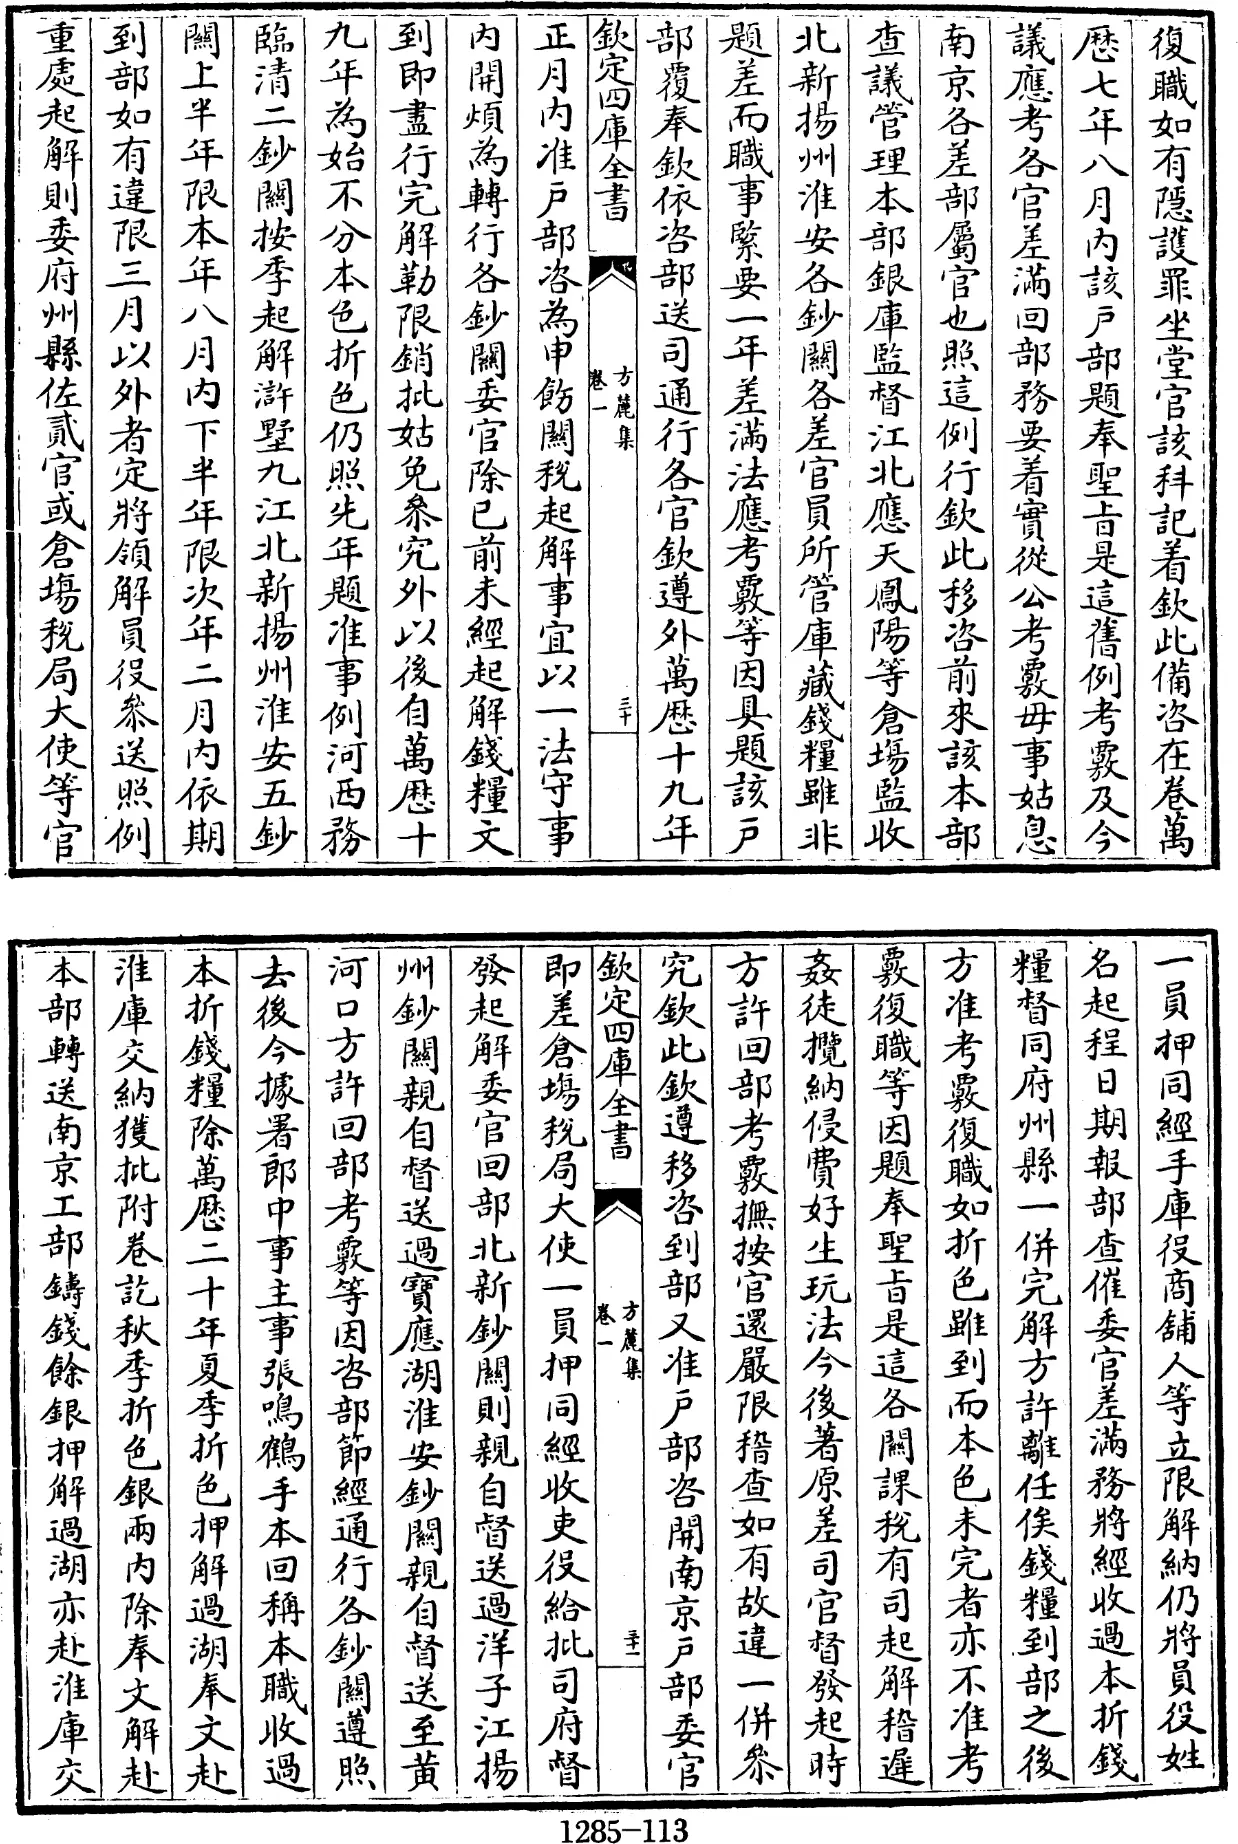 復職如有隱護罪坐堂官該科記着欽此備咨在卷萬
歴七年八月內該戸部題奉聖旨是這舊例考覈及今
議應考各官差滿回部務要着實從公考覈毋事姑息
南京各差部屬官也照這例行欽此移咨前來該本部
查議管理本部銀庫監督江北應天鳳陽等倉塲監收
北新揚州淮安各鈔關各差官員所管庫藏錢糧雖非
題差而職事緊要一年差滿法應考覈等因具題該戸
部覆奉欽依咨部送司通行各官欽遵外萬歴十九年
欽定四庫全書
方麓集
卷一
三十
正月內准戸部咨為申飭關税起解事宜以一法守事
內開煩為轉行各鈔關委官除已前未經起解錢糧文
到即盡行完解勒限銷批姑免叅究外以後自萬歴十
九年為始不分本色折色仍照先年題准事例河西務
臨清二鈔關按季起解滸墅九江北新揚州淮安五鈔
關上半年限本年八月內下半年限次年二月內依期
到部如有違限三月以外者定將領解員役叅送照例
重處起解則委府州縣佐貳官或倉塲税局大使等官
一員押同經手庫役商舖人等立限解納仍將員役姓
名起程日期報部查催委官差滿務將經收過本折錢
糧督同府州縣一併完解方許離任俟錢糧到部之後
方准考覈復職如折色雖到而本色未完者亦不准考
覈復職等因題奉聖旨是這各關課税有司起解稽遲
姦徒攬納侵費好生玩法今後著原差司官督發起時
方許回部考覈撫按官還嚴限稽查如有故違一併叅
究欽此欽遵移咨到部又准戸部咨開南京戸部委官
欽定四庫全書
方麓集
卷一
三十一
即差倉塲税局大使一員押同經收吏役給批司府督
發起解委官回部北新鈔關則親自督送過洋子江揚
州鈔關親自督送過寶應湖淮安鈔關親自督送至黃
河口方許回部考覈等因咨部節經通行各鈔關遵照
去後今據署郎中事主事張鳴鶴手本回稱本職收過
本折錢糧除萬歴二十年夏季折色押解過湖奉文赴
淮庫交納獲批附卷訖秋季折色銀兩內除奉文解赴
本部轉送南京工部鑄錢餘銀押解過湖亦赴淮庫交
1285-113